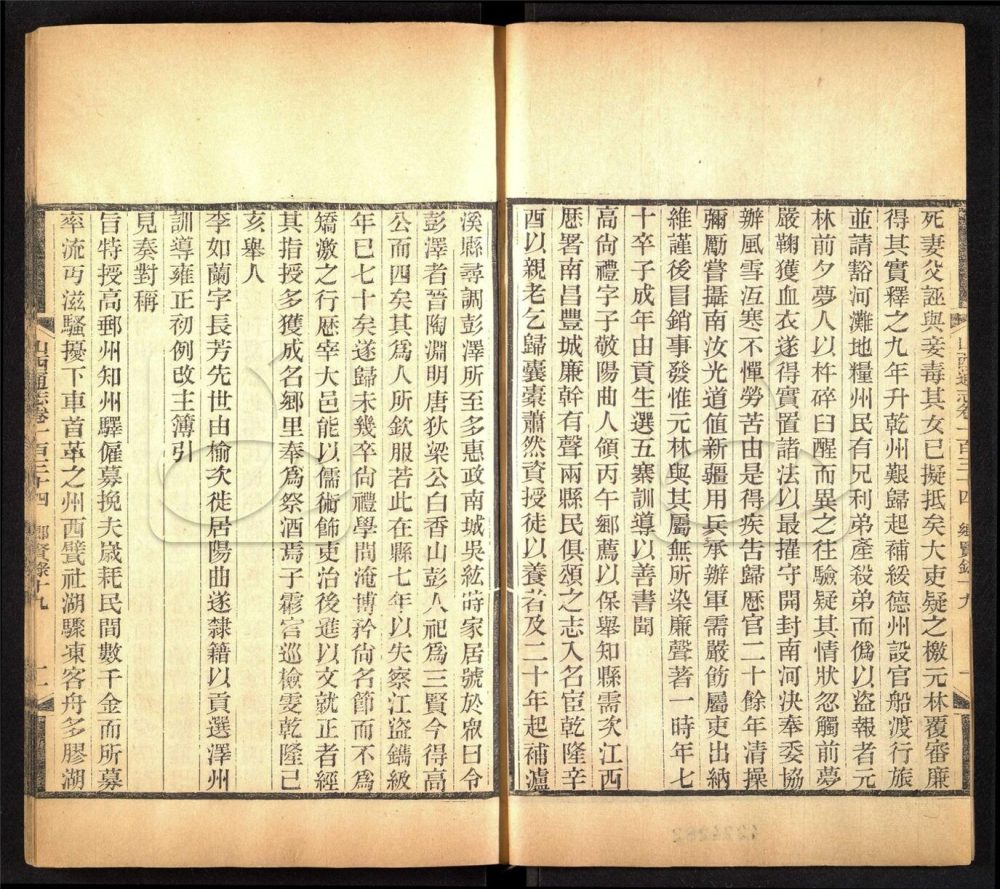 死妻父誣與妾毒其女已擬抵矣大吏疑之檄元林覆審廉
得其實釋之九年升乾州艱歸起補綏德州設官船渡行旅
並請豁河灘地糧州民有兄利弟產殺弟而僞以盜報者元
林前夕夢人以杵碎臼醒而異之往驗疑其情狀忽觸前夢
嚴鞠獲血衣遂得實置諸法以最擢守開封南河決奉委協
辦風雪沍寒不憚勞苦由是得疾告歸歷官二十餘年清操
彌勵嘗攝南汝光道值新疆用兵承辦軍需嚴飭屬吏出納
維謹後冒銷事發惟元林與其屬無所染廉聲著一時年七
十卒子成年由貢生選五寨訓導以善書聞
高尚禮字子敬陽曲人領丙午鄉薦以保舉知縣需次江西
歷署南昌豐城廉幹有聲兩縣民俱頌之志入名宦乾隆辛
酉以親老乞歸囊橐蕭然資授徒以養者及二十年起補瀘
山西通志卷一百三十四 鄉賢錄十九
溪縣尋調彭澤所至多惠政南城吳紘時家居號於眾曰令
彭澤者晉陶淵明唐狄梁公白香山彭人祀爲三賢今得高
公而四矣其爲人所欽服若此在縣七年以失察江盜鐫級
年已七十矣遂歸未幾卒尚禮學問淹博矜尚名節而不爲
矯激之行歷宰大邑能以儒術飾吏治後進以文就正者經
其指授多獲成名鄉里奉爲祭酒焉子霱官巡檢雯乾隆己
亥舉人
李如蘭字長芳先世由榆次徙居陽曲遂隸籍以貢選澤州
訓導雍正初例改主簿引
見奏對稱
旨特授高郵州知州驛僱募挽夫歲耗民間數千金而所募
率流丐滋騷擾下車首革之州西甓社湖驟凍客舟多膠湖
山西通志卷一百三十四 鄉賢錄十九 二